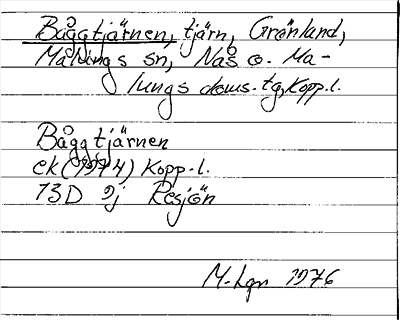 Båggtjärnen, tjärn, Grönland,
Malungs sn, Nås o. Ma-
lungs doms. tg, Kopp. l.
Båggtjärnen
ek (1974) Kopp. l.
13D 9j Resjön
M. Lgn 1976